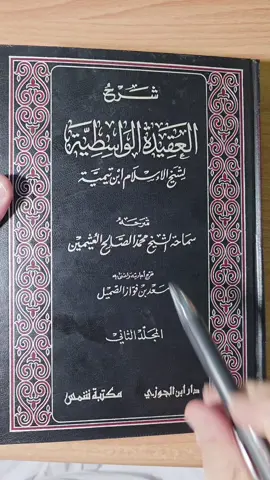 شرح
العقيدة الواسطية
لشيخ الإسلام ابن تيمية
شرحه
سماحة الشيخ محمد الصالح العثيمين
خرج أحاديثه واعتنى به
سعد بن فواز الصميل
المجلد الثاني
دار ابن الجوزي
مكتبة شمس